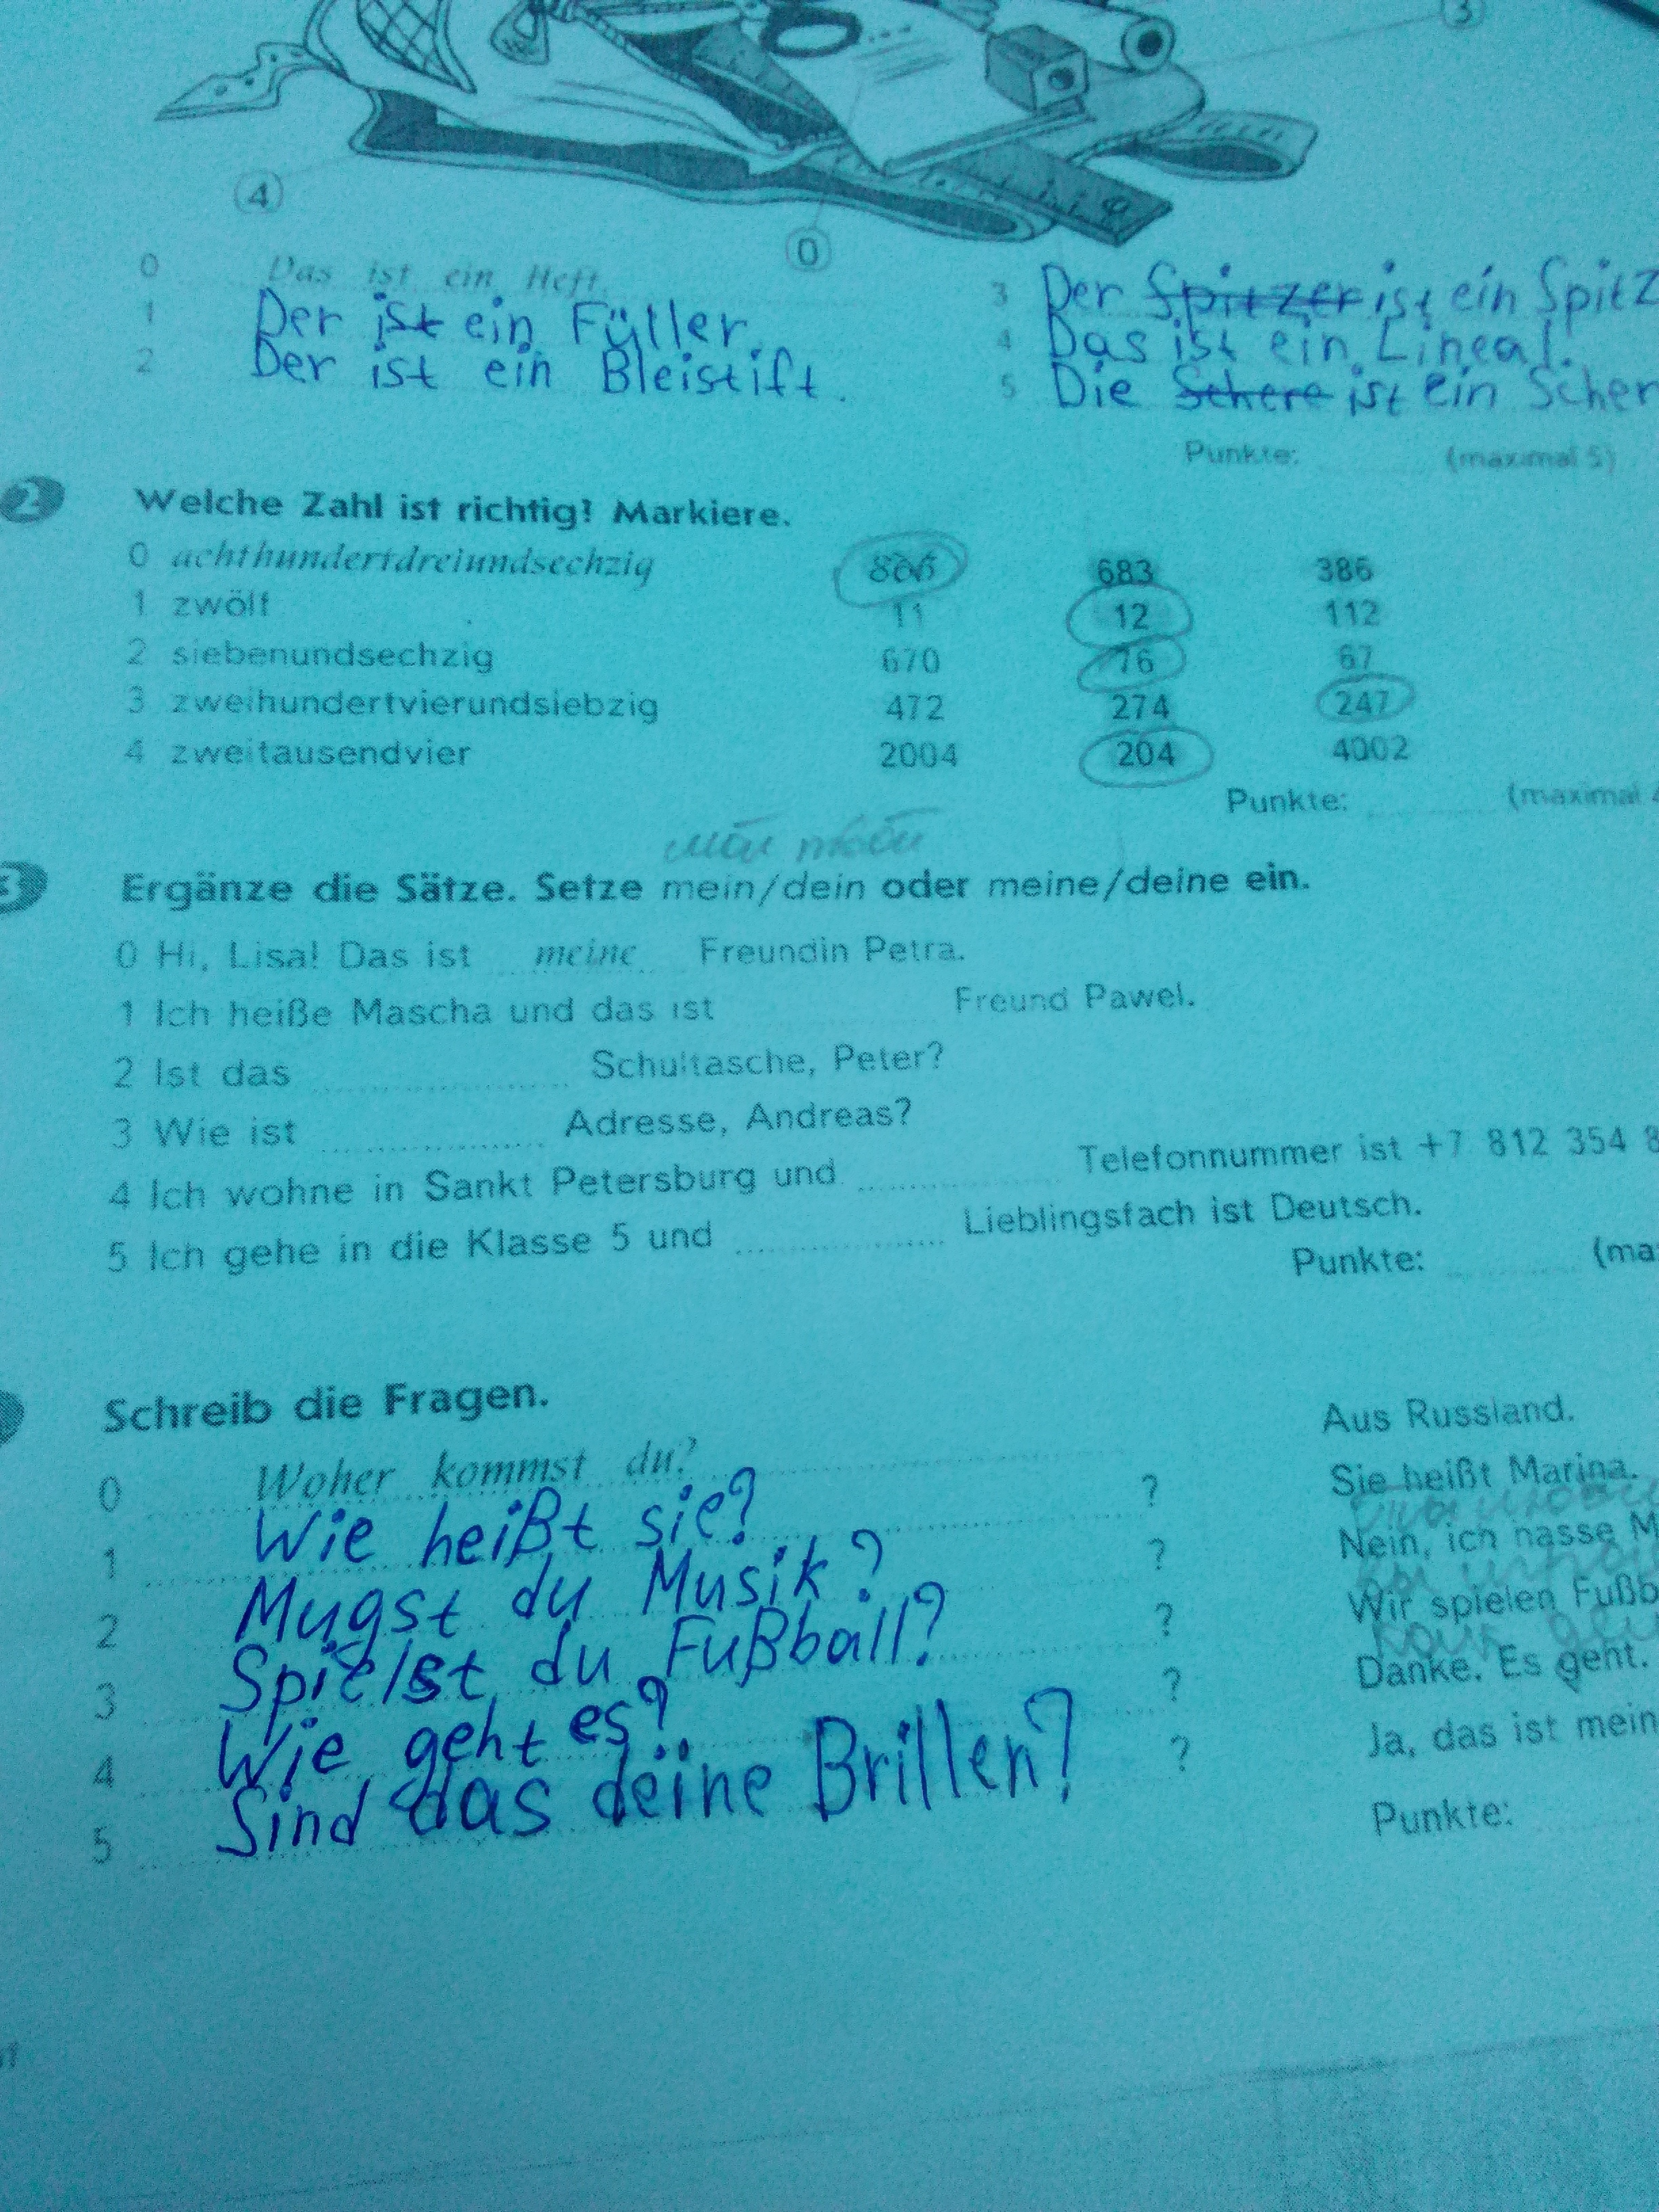 3
4
0
0 Das ist ein Heft.
1 Der ist ein Füller.
2 Der ist ein Bleistift.
3 Der Spitzer ist ein Spitz
4 Das ist ein Lineal.
5 Die Schere ist ein Scher
Punkte: (maximal 5)
2 Welche Zahl ist richtig? Markiere.
0 achthundertdreiundsechzig 683 386
1 zwölf 11 12 112
2 siebenundsechzig 670 76 67
3 zweihundertvierundsiebzig 472 274 247
4 zweitausendvier 2004 204 4002
Punkte: (maximal 4
3 Ergänze die Sätze. Setze mein/dein oder meine/deine ein.
0 Hi, Lisa! Das ist meine Freundin Petra.
1 Ich heiße Mascha und das ist Freund Pawel.
2 Ist das Schultasche, Peter?
3 Wie ist Adresse, Andreas?
4 Ich wohne in Sankt Petersburg und Telefonnummer ist +7 812 354 8
5 Ich gehe in die Klasse 5 und Lieblingsfach ist Deutsch.
Punkte: (ma
Schreib die Fragen.
0 Woher kommst du? Aus Russland.
1 Wie heißt sie? ? Sie heißt Marina.
2 Mugst du Musik? ? Nein, ich hasse M
3 Spielst du Fußball? ? Wir spielen Fußb
4 Wie geht es? ? Danke. Es geht.
5 Sind das deine Brillen? ? Ja, das ist mein
Punkte: